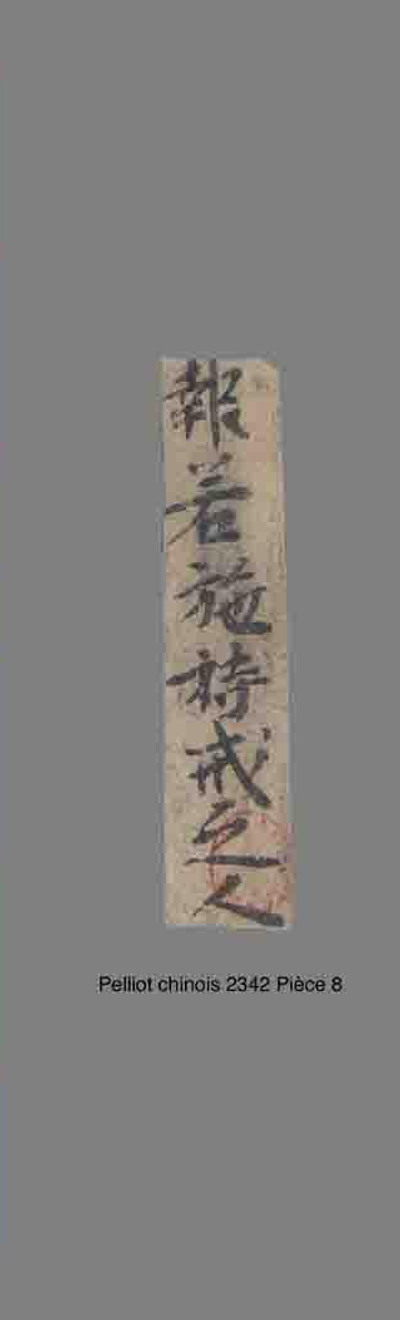 報若施持戒之人
Pelliot chinois 2342 Pièce 8